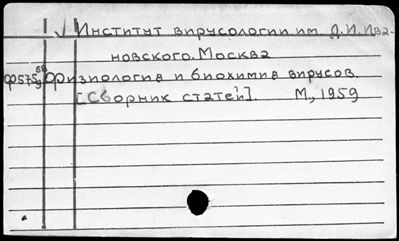 √ Институт вирусологии им. Д.И. Ива-
новского. Москва
Ф5759 58 Физиология и биохимия вирусов.
[Сборник статей]. М, 1959